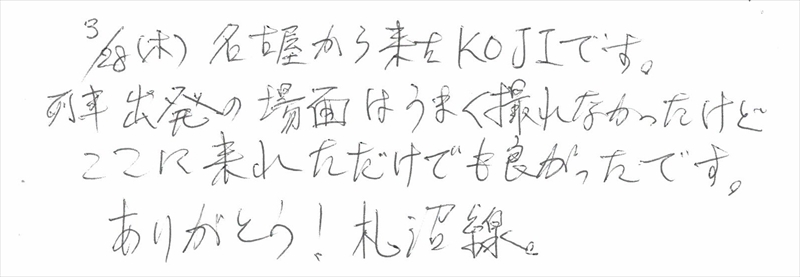 3/28(木) 名古屋から来たKOJIです。
列車出発の場面はうまく撮れなかったけど
ここに来れただけでも良かったです。
ありがとう！札沼線。